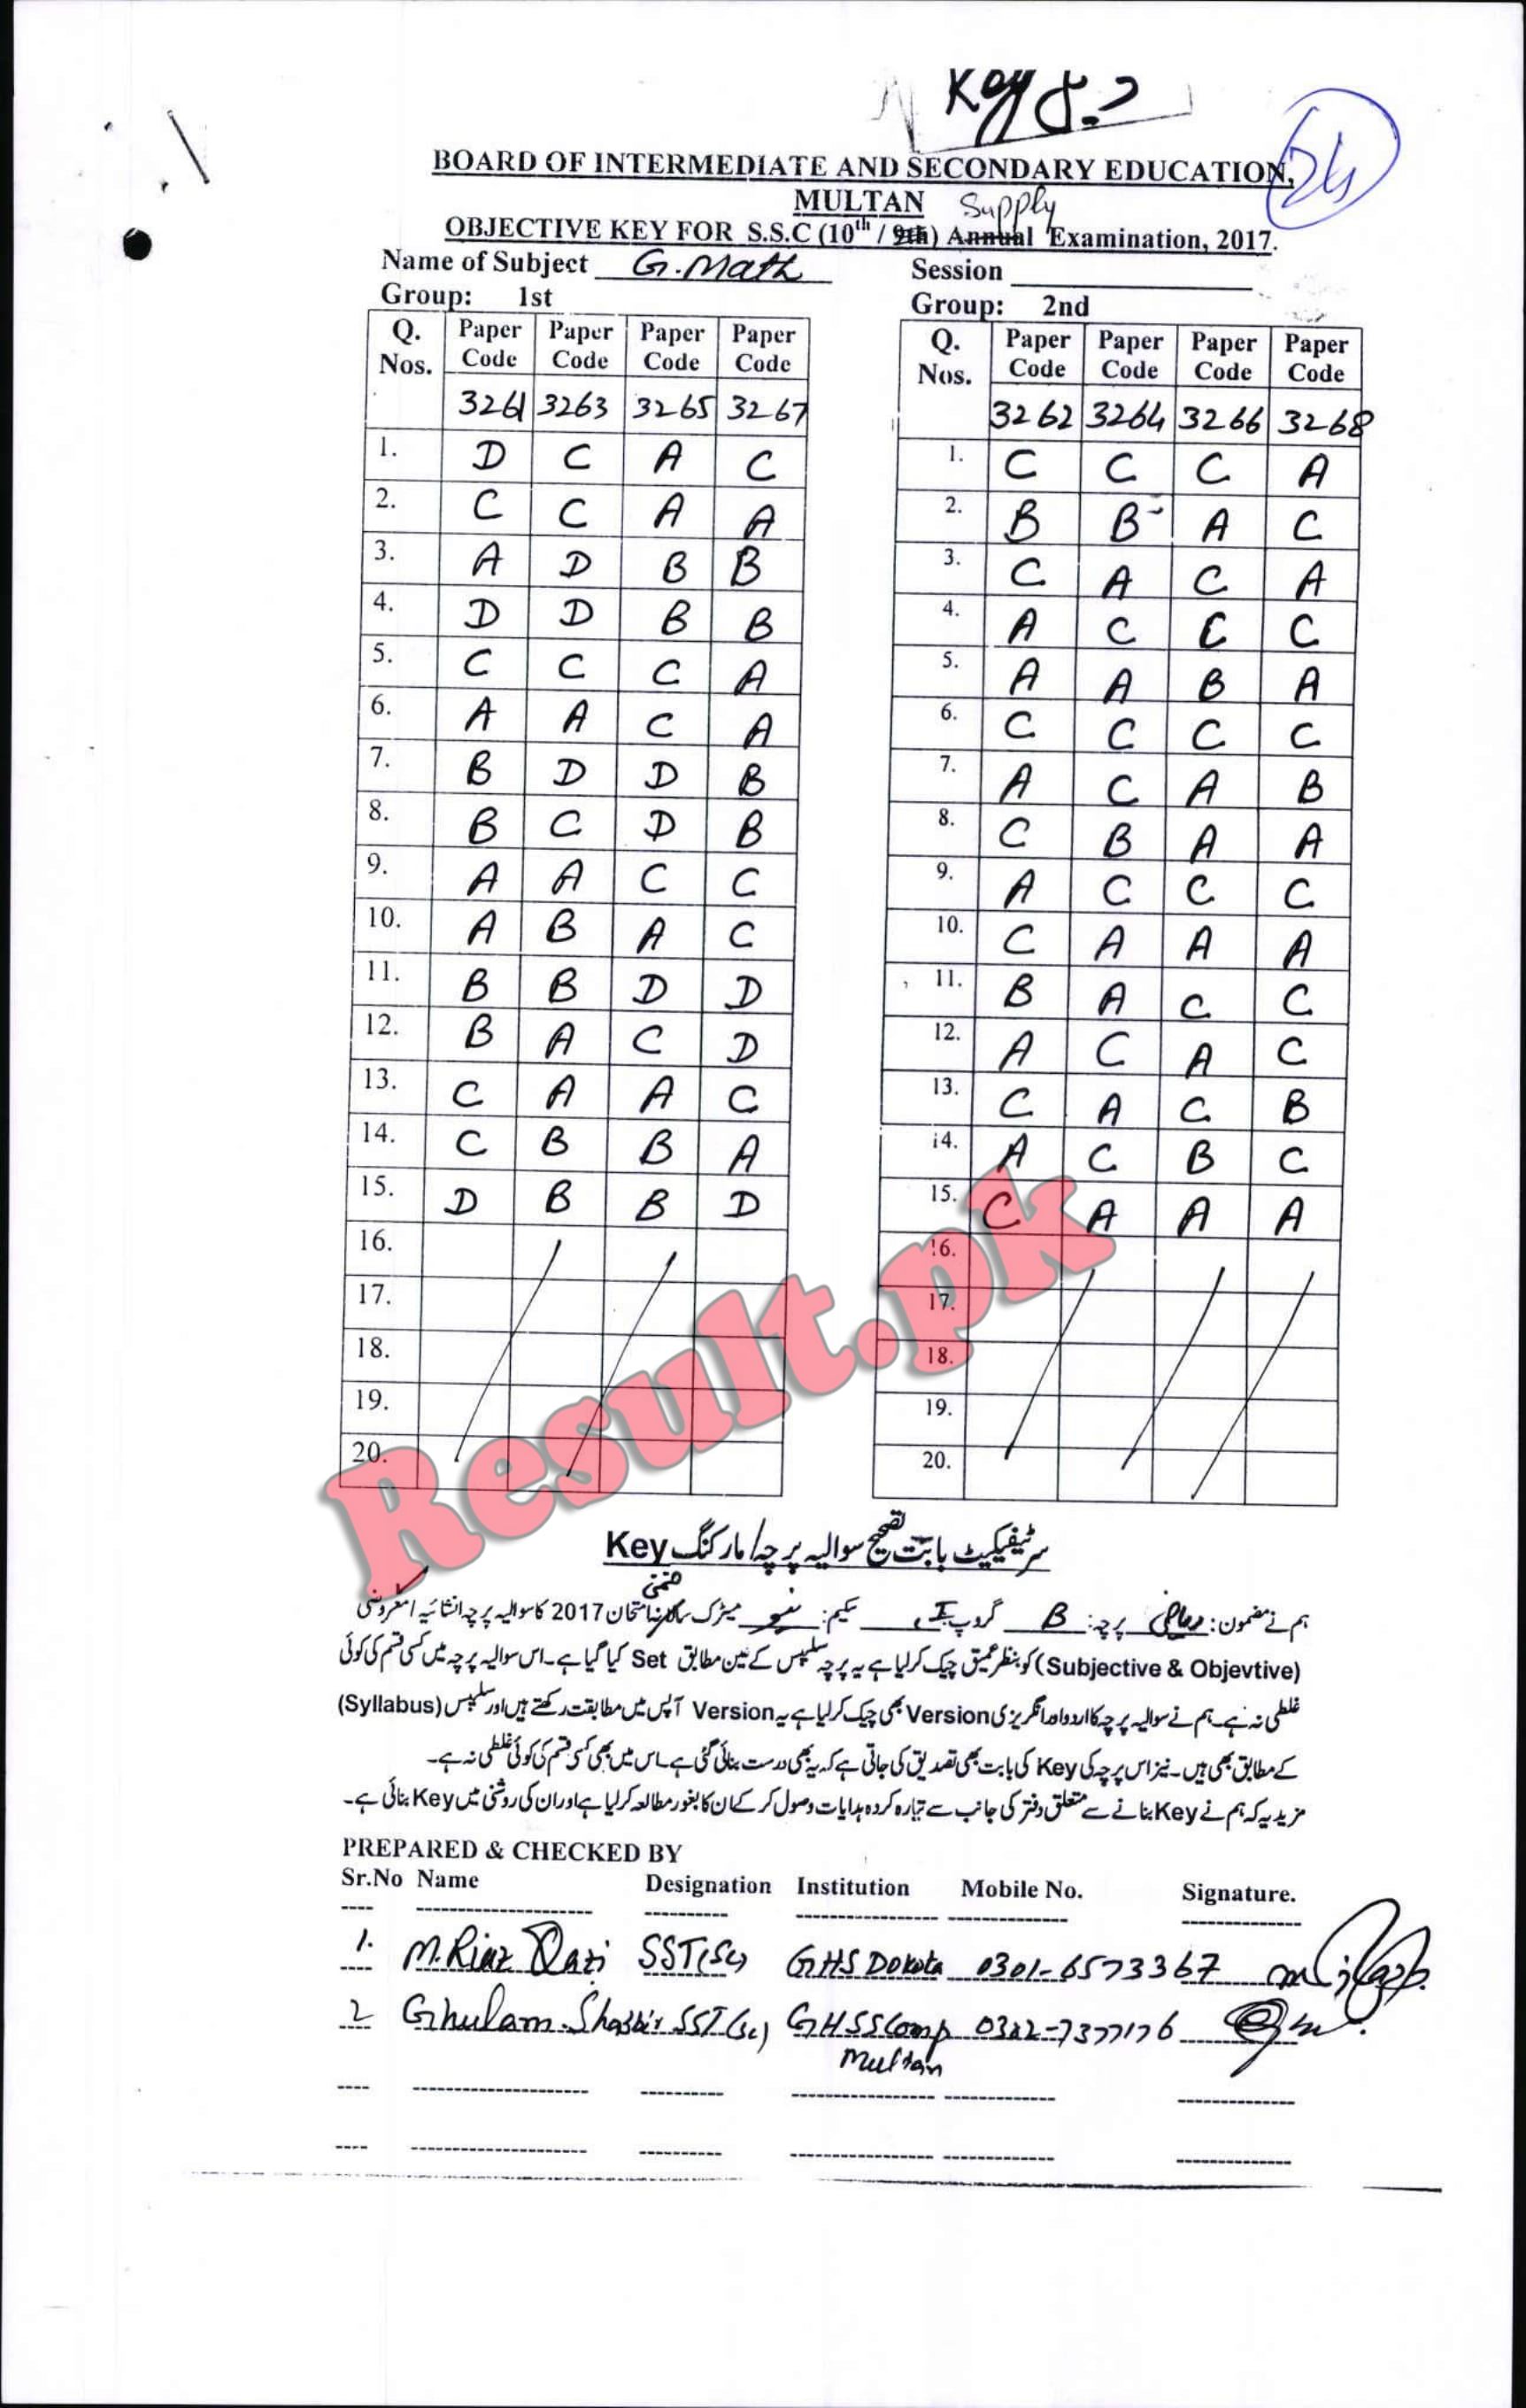 Key
24
BOARD OF INTERMEDIATE AND SECONDARY EDUCATION,
MULTAN Supply
OBJECTIVE KEY FOR S.S.C (10th / 9th) Annual Examination, 2017.
Name of Subject G. Math Session
Group: 1st Group: 2nd
Q. Nos. Paper Code Paper Code Paper Code Paper Code Q. Nos. Paper Code Paper Code Paper Code Paper Code
3261 3263 3265 3267 3262 3264 3266 3268
1. D C A C 1. C C C A
2. C C A A 2. B B A C
3. A D B B 3. C A C A
4. D D B B 4. A C C C
5. C C C A 5. A A B A
6. A A C A 6. C C C C
7. B D D B 7. A C A B
8. B C D B 8. C B A A
9. A A C C 9. A C C C
10. A B A C 10. C A A A
11. B B D D 11. B A C C
12. B A C D 12. A C A C
13. C A A C 13. C A C B
14. C B B A 14. A C B C
15. D B B D 15. C A A A
16. 16.
17. 17.
18. 18.
19. 19.
20. 20.
Result.pk
سرٹیفکیٹ بابت تصحیح سوالیہ پرچہ/مارکنگ Key
ہم نے مضمون: ریاضی پرچہ: B گروپ I سکیم: نیو میٹرک ضمنی امتحان 2017 کا سوالیہ پرچہ انشائیہ / معروضی
(Subjective & Objevtive) کو بنظر عمیق چیک کر لیا ہے یہ پرچہ سلیبس کے عین مطابق Set کیا گیا ہے۔ اس سوالیہ پرچہ میں کسی قسم کی کوئی
غلطی نہ ہے۔ ہم نے سوالیہ پرچہ کا اردو اور انگریزی Version بھی چیک کر لیا ہے یہ Version آپس میں مطابقت رکھتے ہیں اور سلیبس (Syllabus)
کے مطابق بھی ہیں۔ نیز اس پرچہ کی Key کی بابت بھی تصدیق کی جاتی ہے کہ یہ بھی درست بنائی گئی ہے۔ اس میں بھی کسی قسم کی کوئی غلطی نہ ہے۔
مزید یہ کہ ہم نے Key بنانے سے متعلق دفتر کی جانب سے تیار کردہ ہدایات وصول کر کے ان کا بغور مطالعہ کر لیا ہے اور ان کی روشنی میں Key بنائی ہے۔
PREPARED & CHECKED BY
Sr.No Name Designation Institution Mobile No. Signature.
1. M. Riaz Qazi SST(Sc) GHS Dokota 0301-6573367
2 Ghulam Shabbir SST(Sc) GHSS Comp
Multan